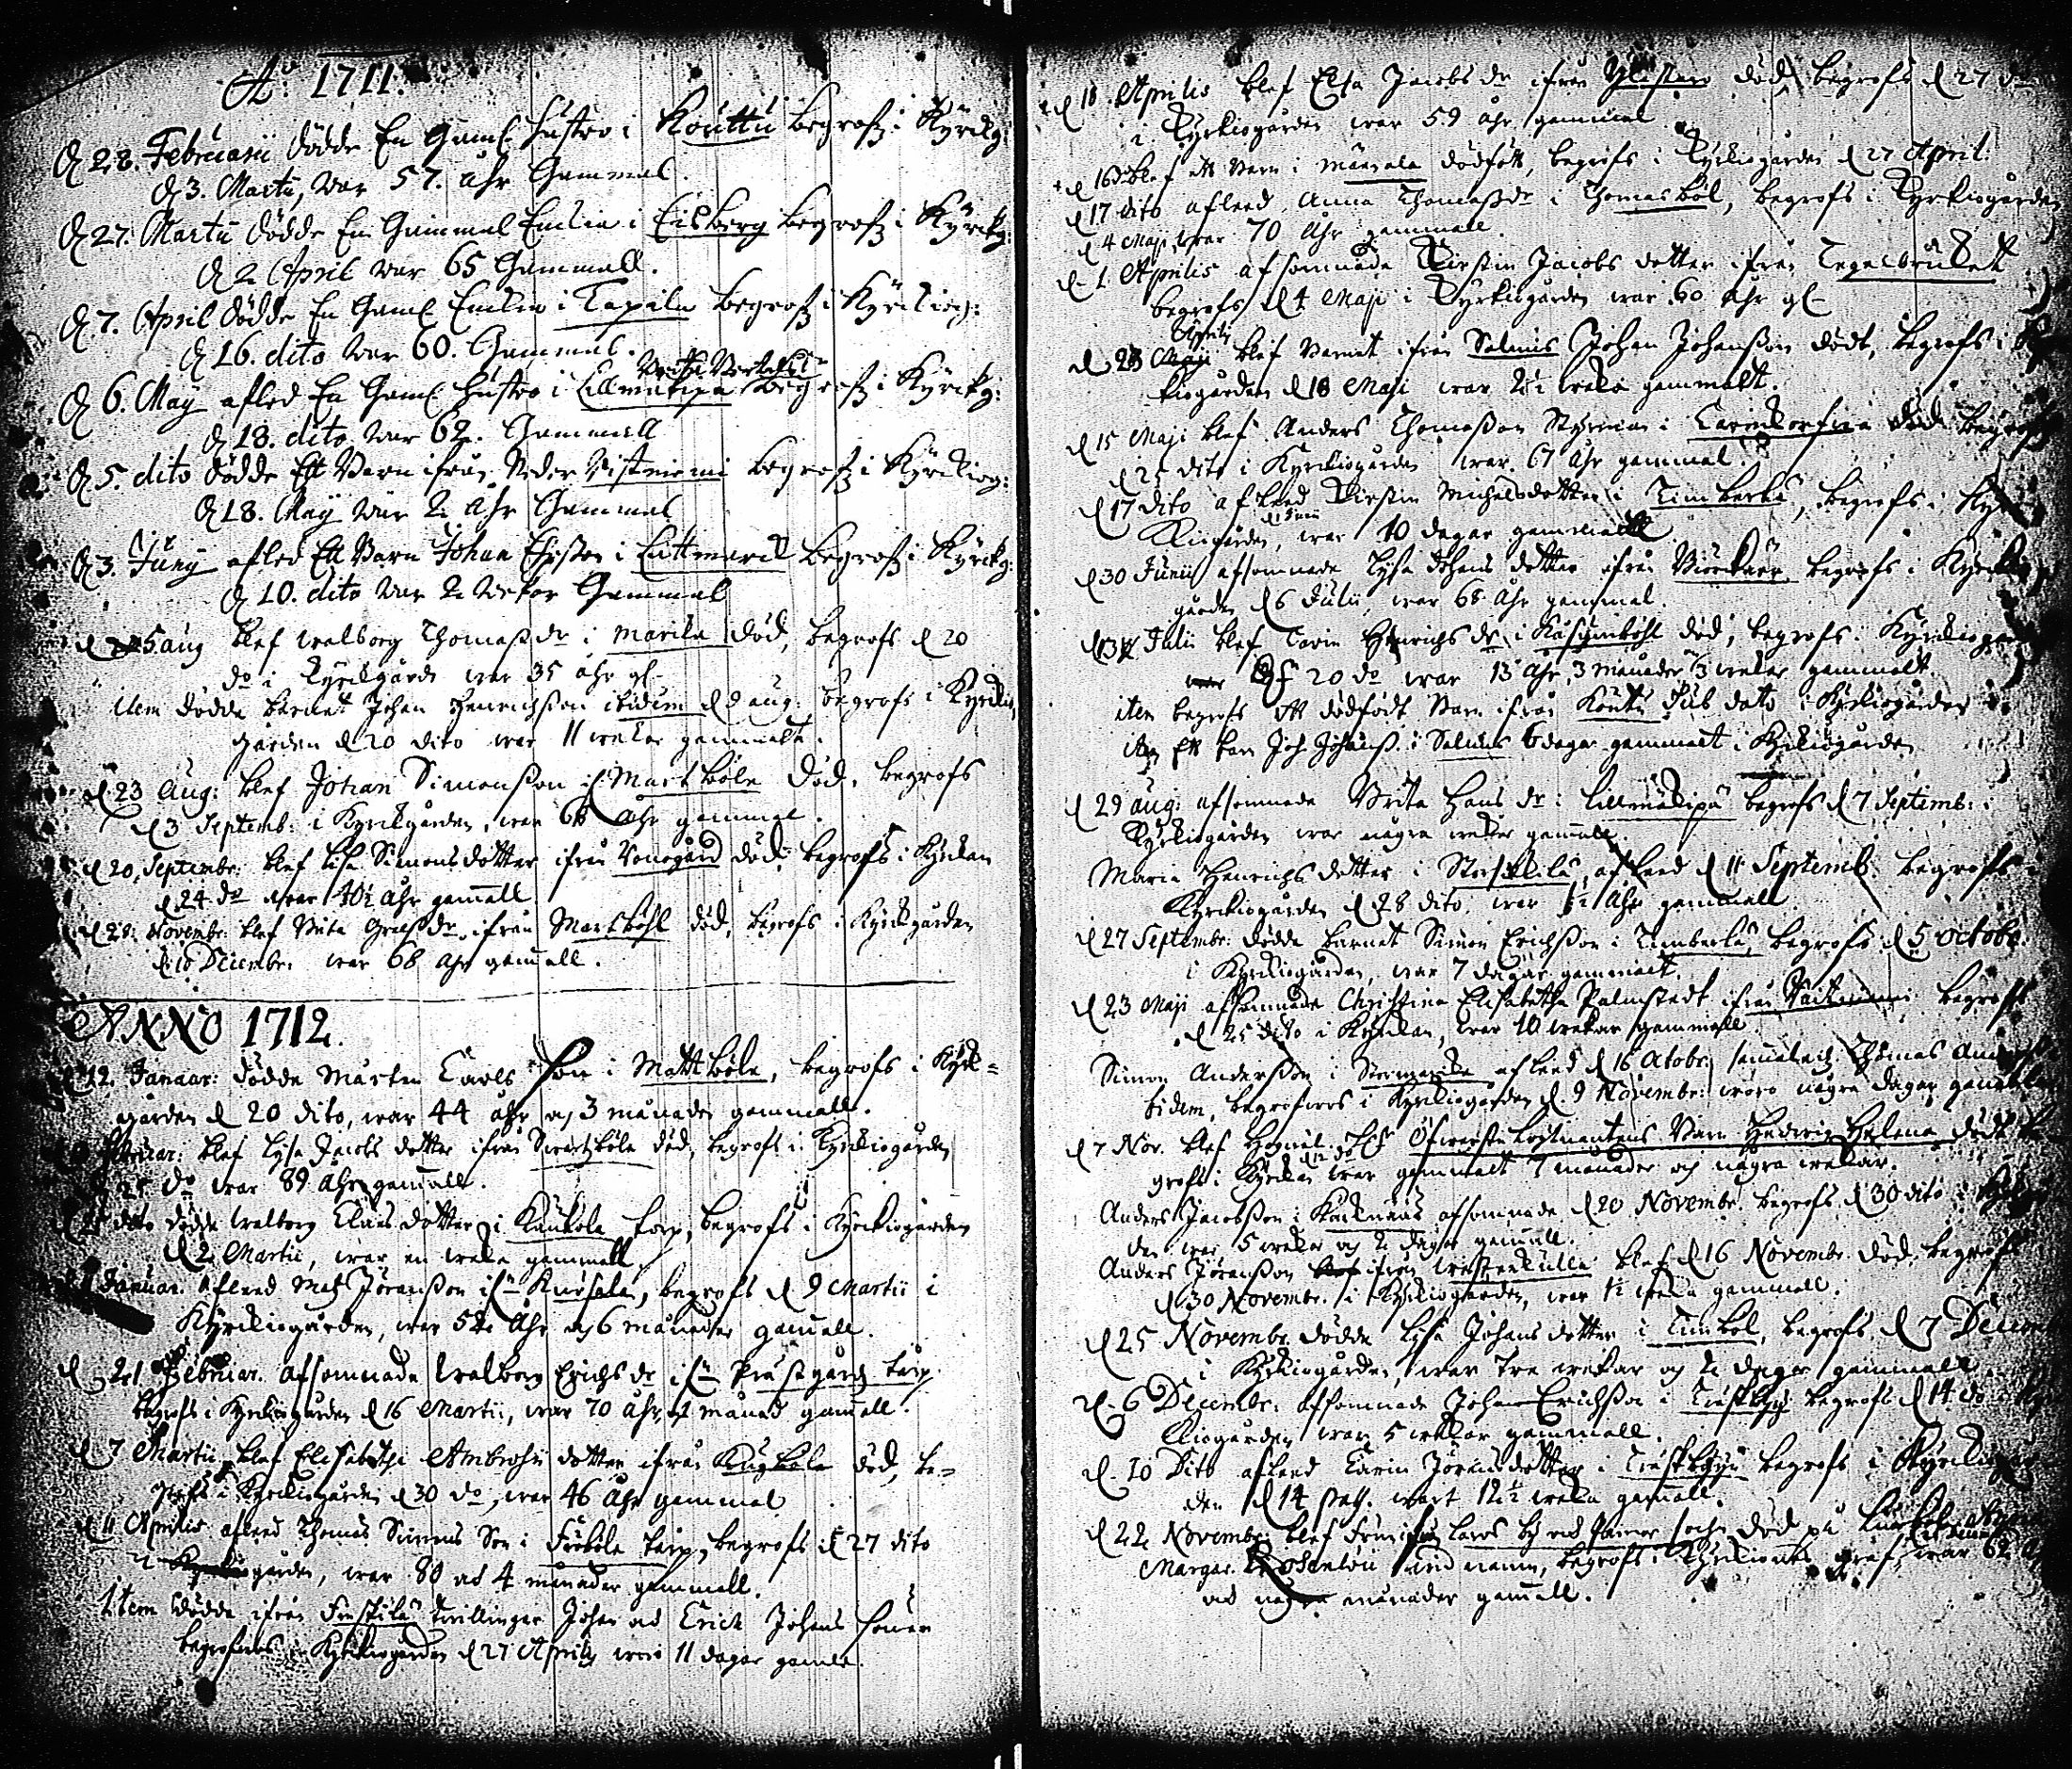 Ao. 1711.
d 28. Februarii dödde En Gaml hustro i Kouttu begrofz i Kyrckg:
d 3. Martii, war 57. åhr Gammal.
d 27. Martii dödde En Gammal Enkia i Eisberg begrofz i Kyrckg:
d 2 April war 65 Gammall.
d 7. April dödde En Gaml Enkia i Tapila begrofz i Kyrckiog:
d 16. dito war 60. Gammal.
d 6. May afled En Gaml hustro i Lillmäkipä begrofz i Kyrckg:
d 18. dito war 62. Gammall
d 5. dito dödde Ett Barn ifrån Neder Vistniemi begrofz i Kyrckiog:
d 18. May war 2 åhr Gammal
d 3. Juny afled Ett Barn Johan i begrofz i Kyrckg:
d 10. dito war 2 wekor Gammal
d 5 aug blef walborg Thomasdr i Marila död, begrofs d 20
do i Kyrckgård war 35 åhr gl
item dödde barnet Johan Henrichsson ibidem d 9 aug: begrofs i Kyrckio
gården d 20 dito war 11 wekor gammalt.
d 23 Aug: blef Johan Simonsson if. Martböle död, begrofs
d 3 Septemb: i Kyrckgården, war åhr gammal.
d 20. Septembr: blef Lisa Simonsdotter ifrån död, begrofs i Kyrckan
d 24 do war 10½ åhr gamall
d 28: Novembr: blef Brita dr ifrån Martböhl död, begrofs i Kyrckgården
d 10 Decembr. war 68 åhr gamall.
ANNO 1712.
d 12. Januar: dödde Mårten Carls Son i Mattböle, begrofs i Kyrk=
gården d 20 dito, war 44 åhr och 3 månader gammall.
Februar: blef Lisa Jacobs dotter ifrån Swartzböle död, begrofs i Kyrckiogården
d 25 do war 89 åhr gamall.
d dito dödde Walborg Clais dotter i Kaukola torp, begrofs i Kyrckiogården
d 2 Martii, war en weka gammall
Januar. afleed Mats Jöransson if Kursala, begrofs d 9 Martii i
Kyrckiogården, war 52 åhr och 6 månader gamall.
d 21 Februar. afsomnade Walborg Erichs dr if Prästgårdz torp
begrofs i Kyrckiogården d 16 Martii, war 70 åhr, månad gamall.
d 7 Martii blef Elisabetha Ambrosii dotter ifrån Kugböle död, be=
grofs i Kyrckiogården d 30 do, war 46 åhr gammal
d 11 Aprilis afleed Thomas Simons Son i Forböle torp, begrofs d 27 dito
i gården, war 80 och 4 månader gammall.
Item dödde ifrån twillingar Johan och Erich Johans söner
begrofwes i Kyrckiogården d 27 Aprilis woro 11 dagar gamla.
d 18. Aprilis blef Elsa Jacobs dr ifrån död, begrofs d 27 do
i Kyrkiogården war 59 åhr gammal
d 16 do blef ett barn i Mänsala dödfött, begrofs i Kyrkiogården d 27 April:
d 17 dito afleed Anna Thomasdr i Thomasböl, begrofs i Kyrkiogården
d 4 Maji, war 70 åhr gammall.
d 1 Aprilis afsomnade Kirstin Jacobs dotter ifrån Tegelbruket
begrofs d 4 Maji i Kyrkiogården war 60 åhr gl
Aprilis
d 28 blef barnet ifrån Salnäs Johan Johansson dödt, begrofs i Kyr
kiogården d 18 Maji war 2½ weka gammalt.
d 15 Maji blef Anders Thomasson Styrman i död, begrofs
d 25 dito i Kyrckiogården war 67 åhr gammal.
d 17 dito afleed Kirstin Michelsdotter i Timberka, begrofs i Kyr
kiogården, war 10 dagar gammall
d 30 Junii afsomnade Lisa Johans dotter ifrån begrofs i Kyrckio
gården d 6 Julii, war 68 åhr gammal.
d 13 Julii blef Carin Henrichs dr i Kasgimböhl död, begrofs i Kyrckiogården
d 20 do war 13 åhr, 3 månader, 3 wekor gammalt.
item begrofs ett dödfödt barn ifrån Koutu sub dato i Kyrkiogården
Ett barn Joh. Johanss. i Salnäs 6 dagar gammalt i Kyrkiogården
d 29 aug: afsomnade Brita Hans dr i Lillmäkipä begrofs d 7 Septemb: i
Kyrckiogården war några weker gamall.
Maria Henrichs dotter i afleed d 11 Septemb. begrofs
Kyrckiogården d 28 dito. war åhr gammall
d 27 Septembr: dödde barnet Simon Erichsson i Timberka, begrofs d 5 octobr.
i Kyrckiogården, war 7 dagar gammalt.
d 23 Maji afsomnade Christina Elisabetha Palmstedt ifrån begrofs
d 25 dito i Kyrckan, war 10 wekar gammall.
Simon Andersson i afleed d 16 octobr. Thomas
ibidem, begrofwes i Kyrckiogården d. 9 Novembr: woro några dagar gamla
d 7 Nov. blef Öfwerste Leutnantens Barn Hedwig Helena dödt be
grofs i Kyrckan war gammalt 7 månader och några wekar.
Anders Jacobsson i afsomnade d 20 Novembr. begrofs d 30 dito i
den war 5 weker och 2 dagar gamall.
Anders Jöransson ifrån Westerkulla blef d 16 Novembr. död begrofs
d 30 Novembr. i Kyrckiogården, war ½ weka gammall.
d 25 Novembr. dödde Lisa Johans dotter i Timböl, begrofs d 7 Decem
i Kyrckiogården, war tre wekar och 2 dagar gammall.
d. 6 Decembr: afsomnade Johan Erichsson i Träskbyy begrofs d 14 do
kiogården war 5 wekar gammall.
d. 10 Dito afleed Carin Jörensdotter i Träskbyy begrofs i Kyrckiogår
den d 14 war 12½ weka gamall.
d 22 Novembr: blef död på
Margar. Rosenlew wid namn, begrofs i graf, war 62 åhr
och några månader gamall.